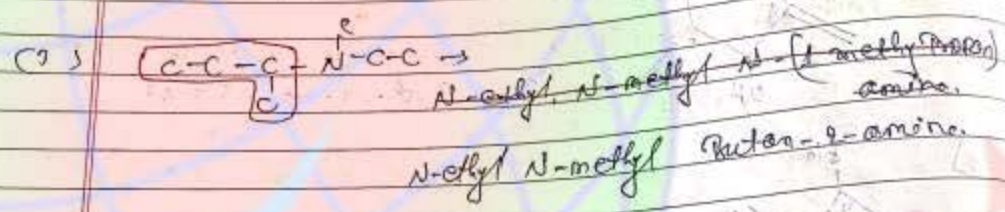 C
(3) C-C-C-N-C-C →
C
N-ethyl, N-methyl N-(1 methyl propan)
amine.
N-ethyl N-methyl Butan-2-amine.